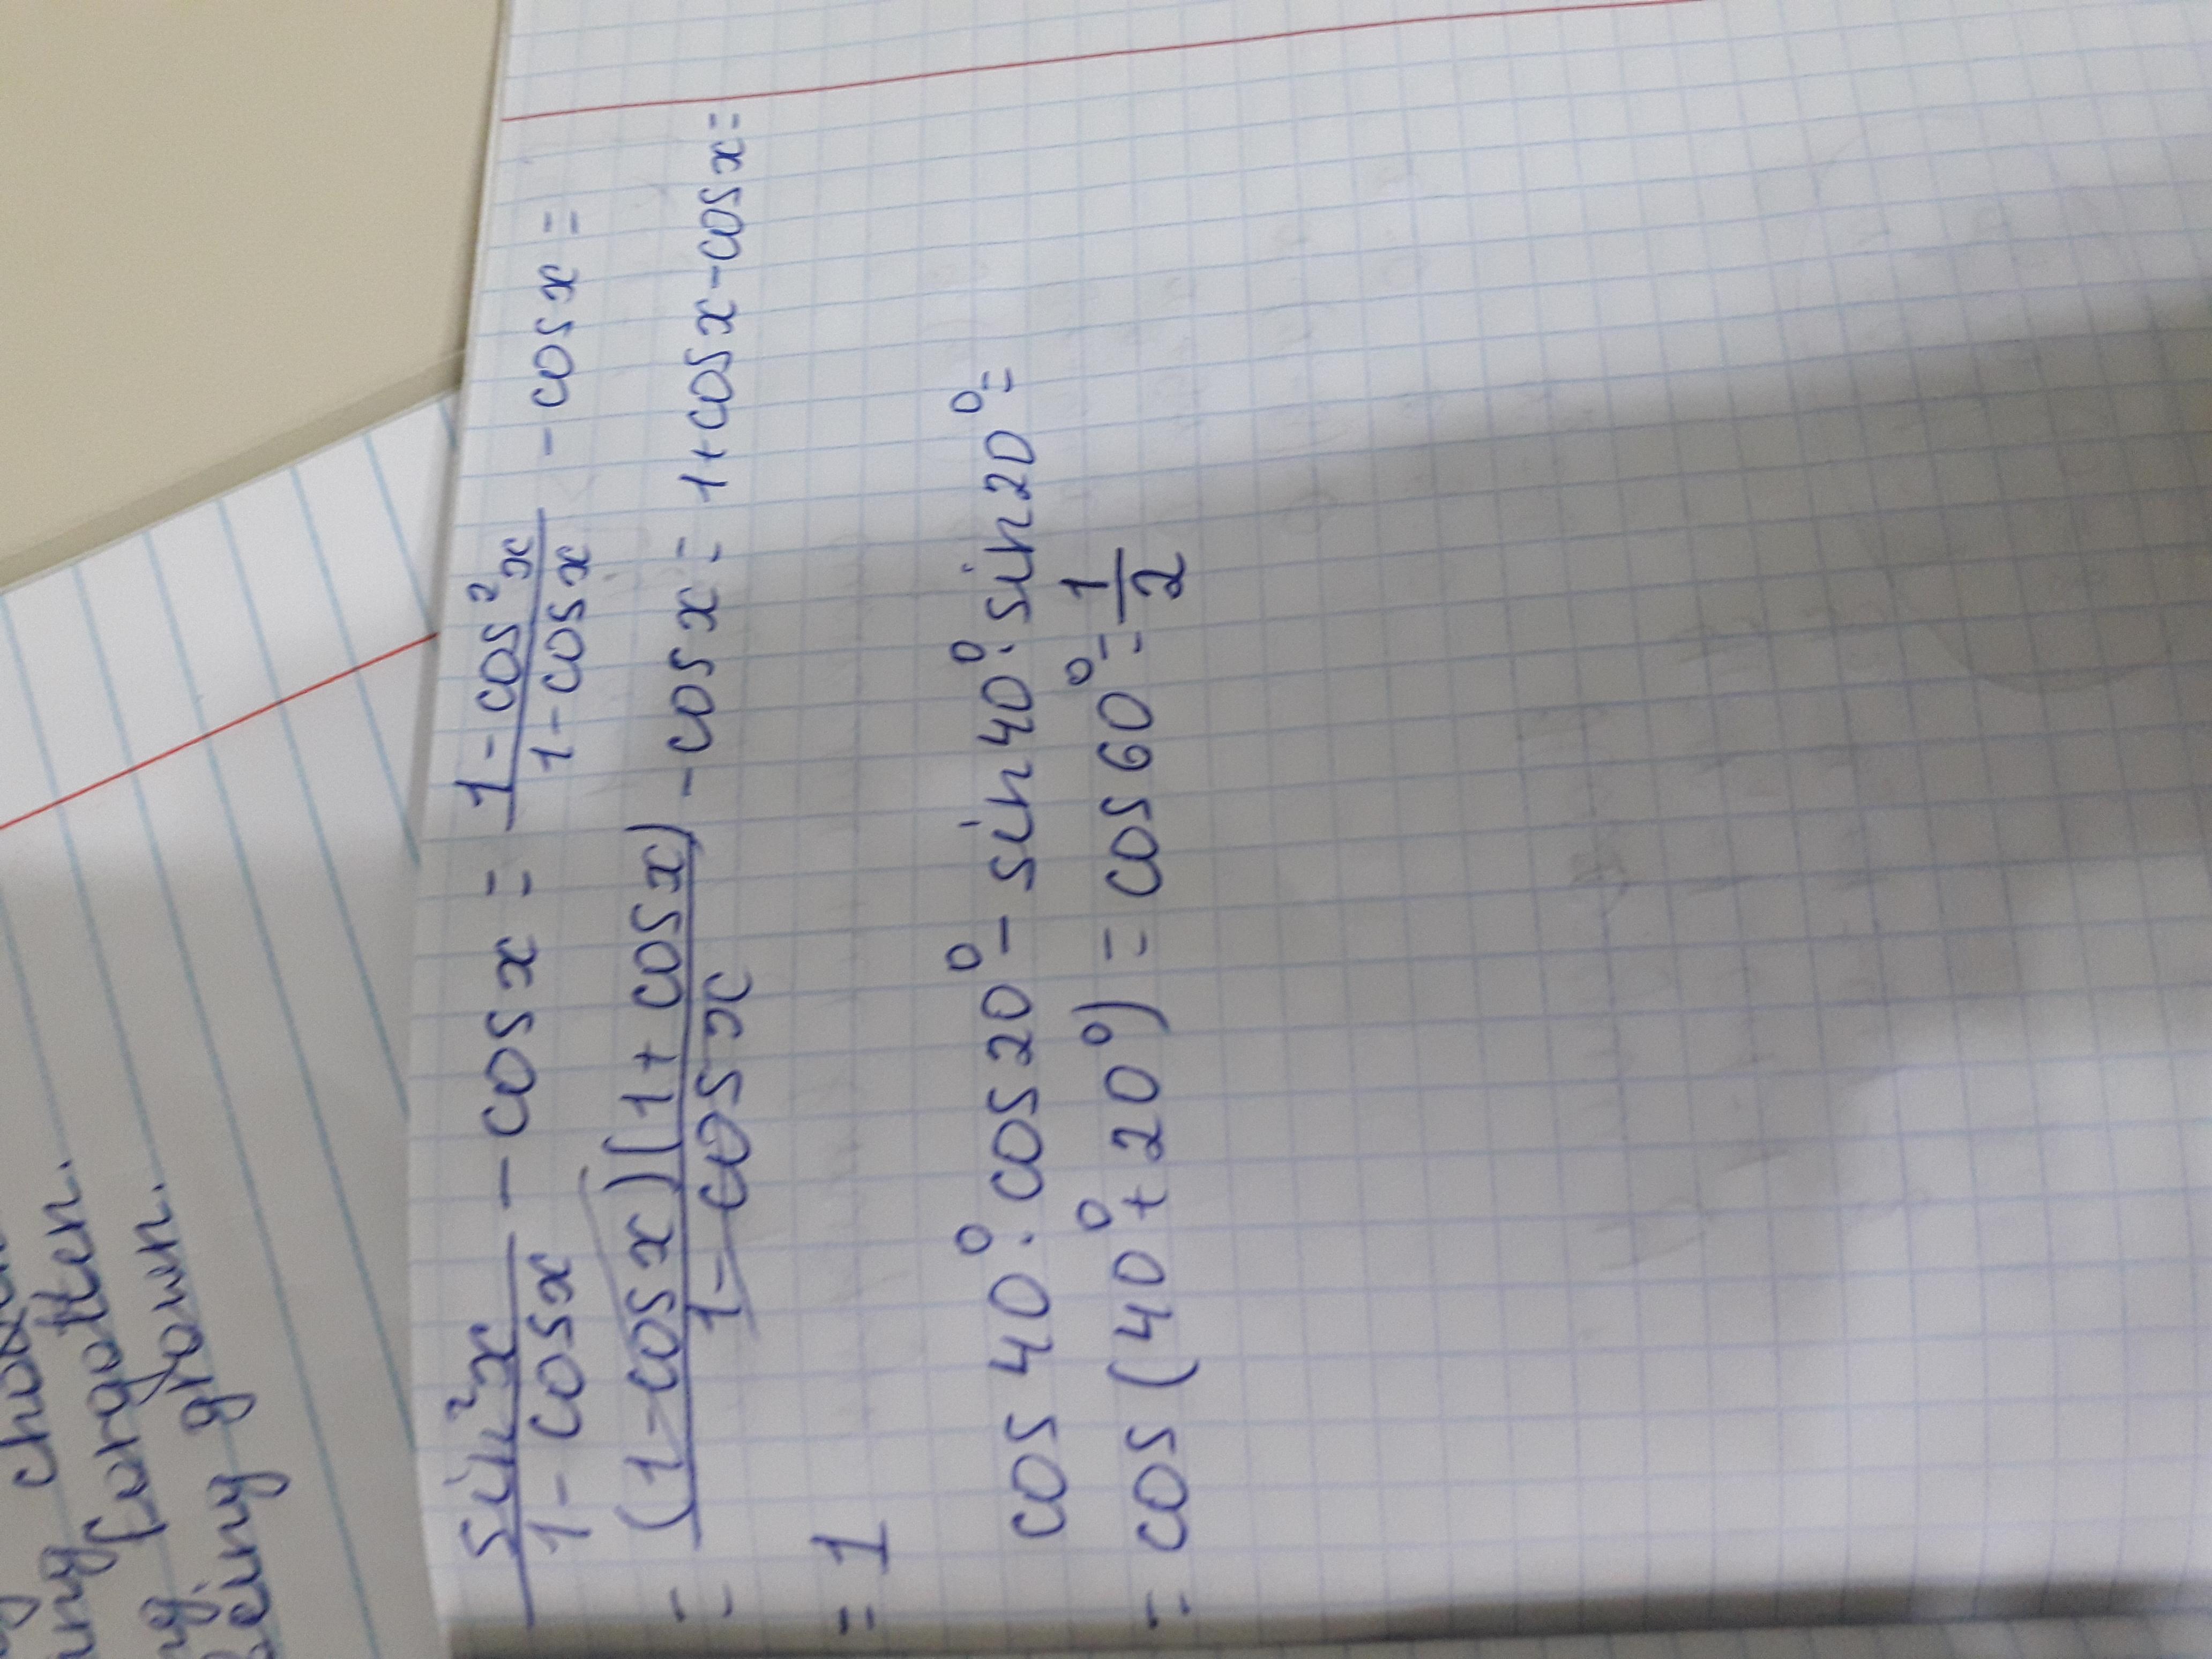 forgotten.
being grown.
sin²x / 1 - cosx - cosx = 1 - cos²x / 1 - cosx - cosx =
= (1-cosx)(1+cosx) / 1-cosx - cosx = 1+cosx-cosx=
= 1
cos 40°·cos20°- sin40°·sin20°=
= cos (40°+20°) = cos60°= 1/2